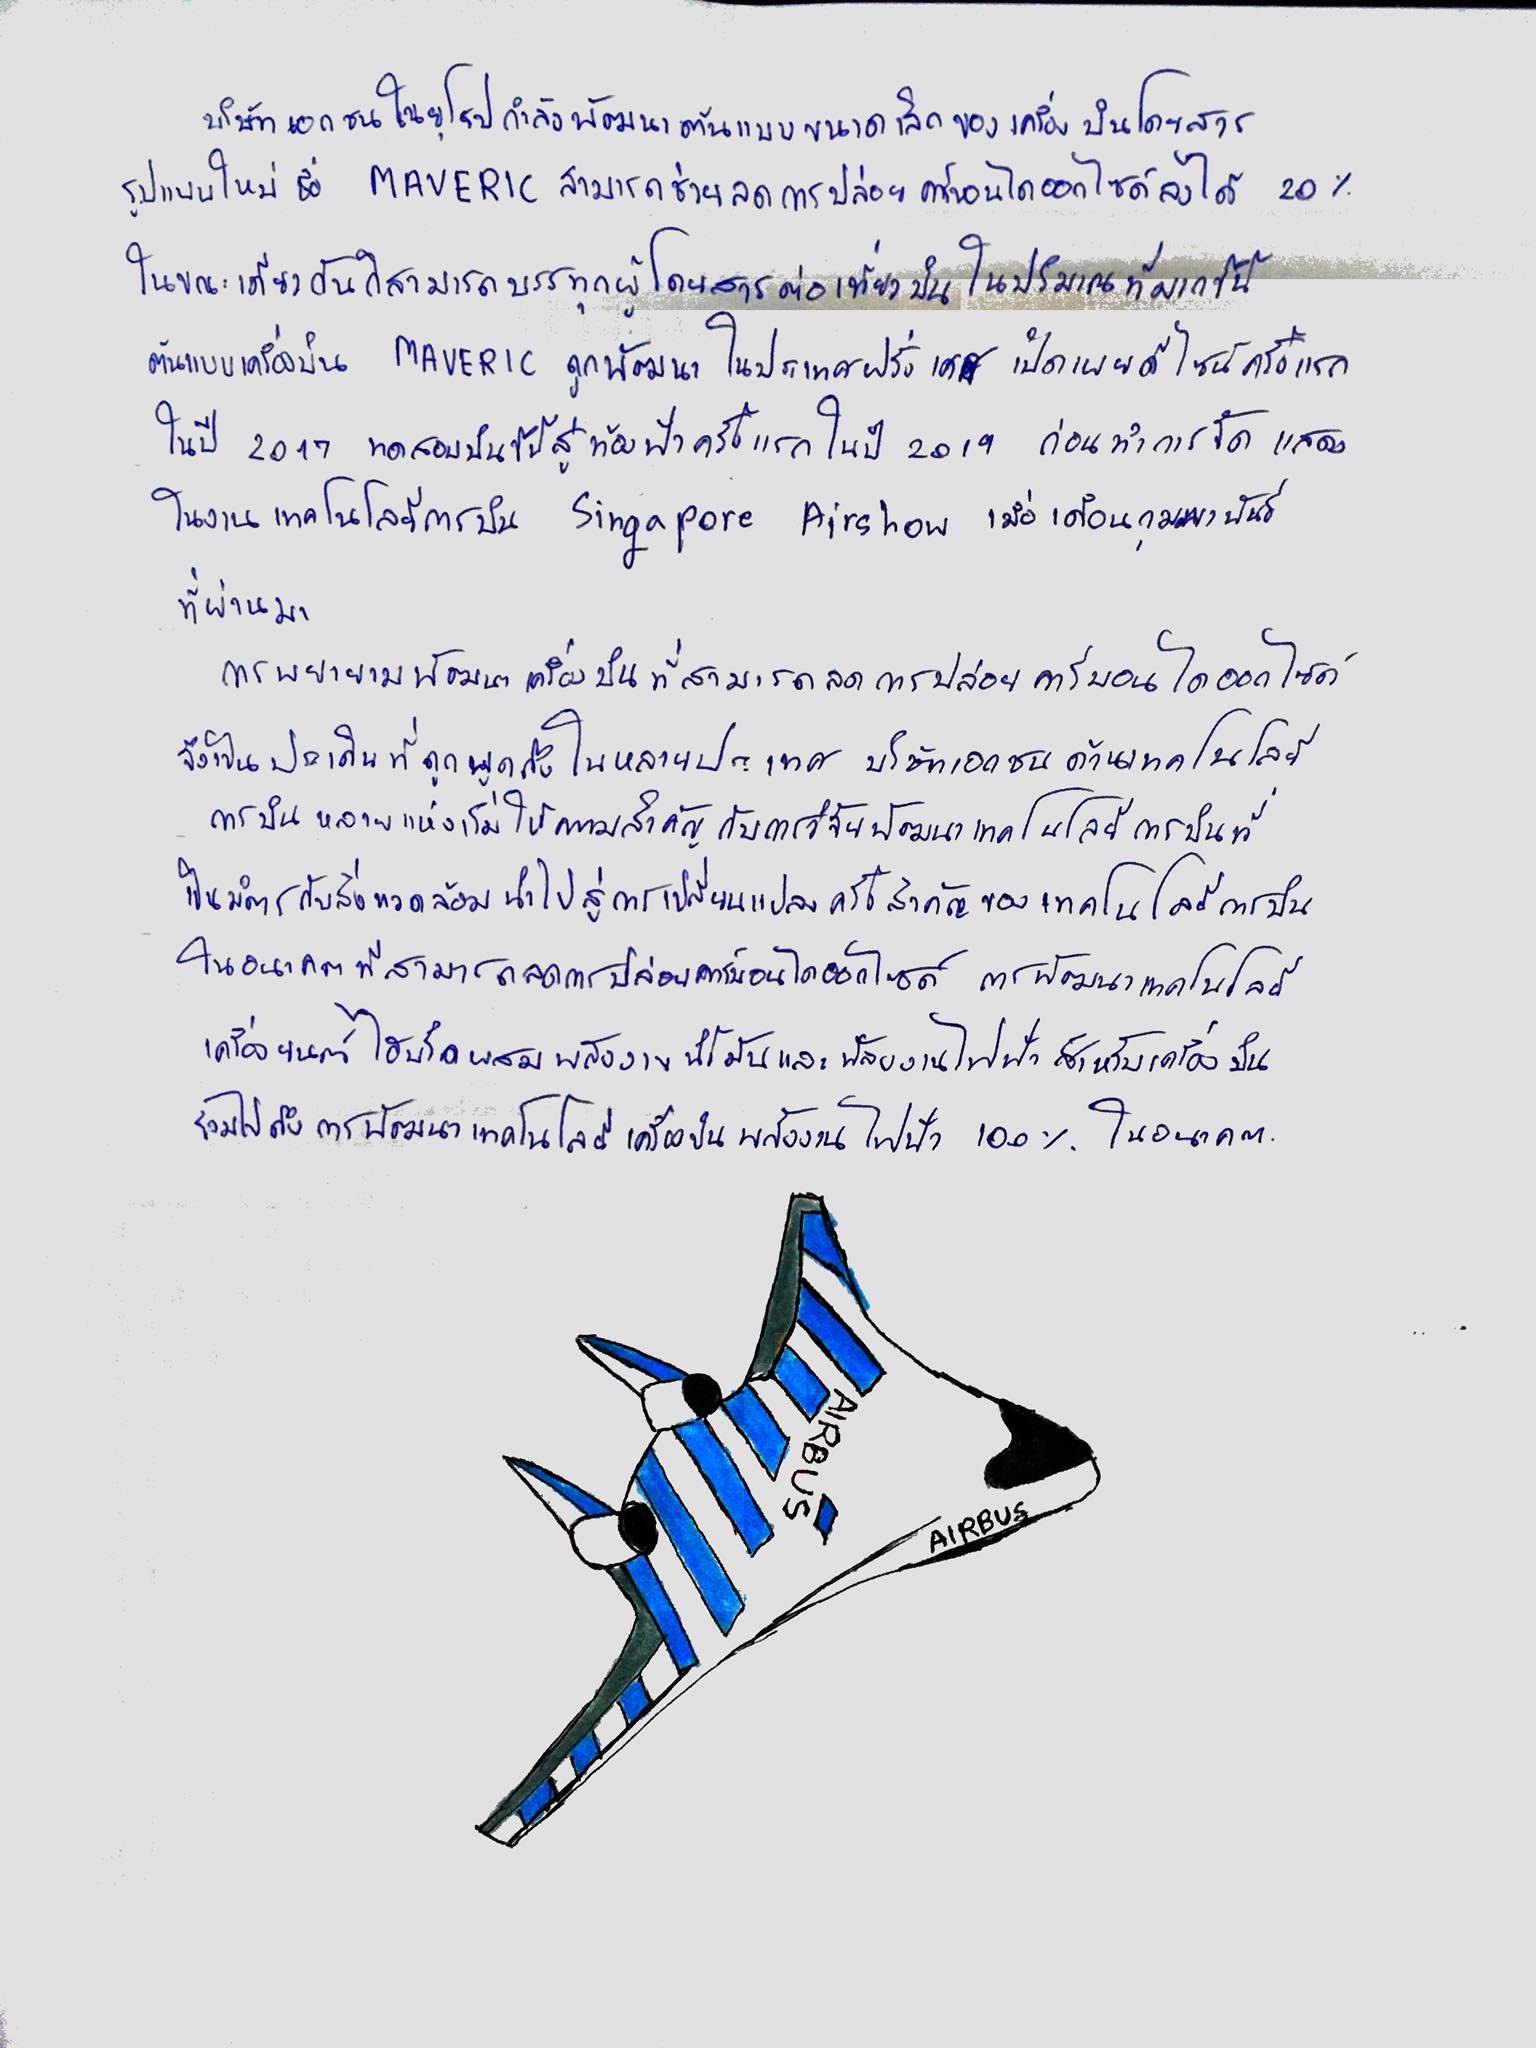 บริษัทเอกชนในยุโรปกำลังพัฒนาต้นแบบขนาดเล็กของเครื่องบินโดยสาร
รูปแบบใหม่ ชื่อ MAVERIC สามารถช่วยลดการปล่อยคาร์บอนไดออกไซด์ลงได้ 20%
ในขณะเดียวกันก็สามารถบรรทุกผู้โดยสารต่อเที่ยวบินในปริมาณที่มากขึ้น
ต้นแบบเครื่องบิน MAVERIC ถูกพัฒนาในประเทศฝรั่งเศส เปิดเผยดีไซน์ครั้งแรก
ในปี 2017 ทดสอบบินขึ้นสู่ท้องฟ้าครั้งแรกในปี 2019 ก่อนทำการจัดแสดง
ในงานเทคโนโลยีการบิน Singapore Airshow เมื่อเดือนกุมภาพันธ์
ที่ผ่านมา
การพยายามพัฒนาเครื่องบินที่สามารถลดการปล่อยคาร์บอนไดออกไซด์
จึงเป็นประเด็นที่ถูกพูดถึงในหลายประเทศ บริษัทเอกชนด้านเทคโนโลยี
การบินหลายแห่งเริ่มให้ความสำคัญกับการวิจัยพัฒนาเทคโนโลยีการบินที่
เป็นมิตรกับสิ่งแวดล้อมนำไปสู่การเปลี่ยนแปลงครั้งสำคัญของเทคโนโลยีการบิน
ในอนาคตที่สามารถลดการปล่อยคาร์บอนไดออกไซด์ การพัฒนาเทคโนโลยี
เครื่องยนต์ไฮบริดผสมพลังงานน้ำมันและพลังงานไฟฟ้าสำหรับเครื่องบิน
รวมไปถึงการพัฒนาเทคโนโลยีเครื่องบินพลังงานไฟฟ้า 100% ในอนาคต.
AIRBUS
AIRBUS